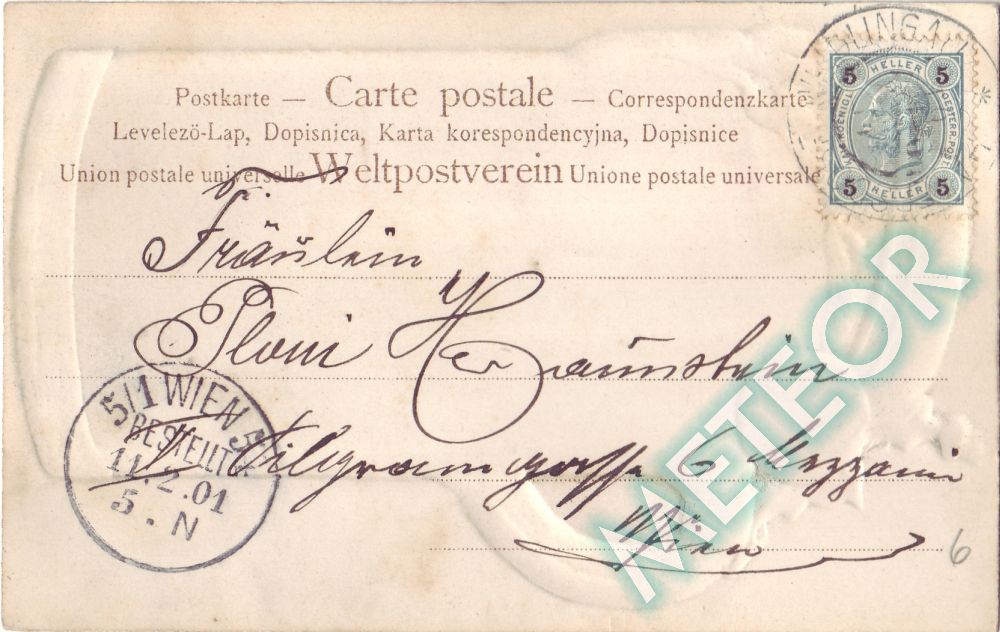 Postkarte — Carte postale — Correspondenzkarte
Levelező-Lap, Dopisnica, Karta korespondencyjna, Dopisnice
Union postale universelle Weltpostverein Unione postale universale
5 HELLER 5
KAIS. KOENIGL. OESTERR. POST
5 HELLER 5
Fräulein
Wien
5/1 WIEN 5
BESTELLT
11.2.01
5. N
6
METEOR